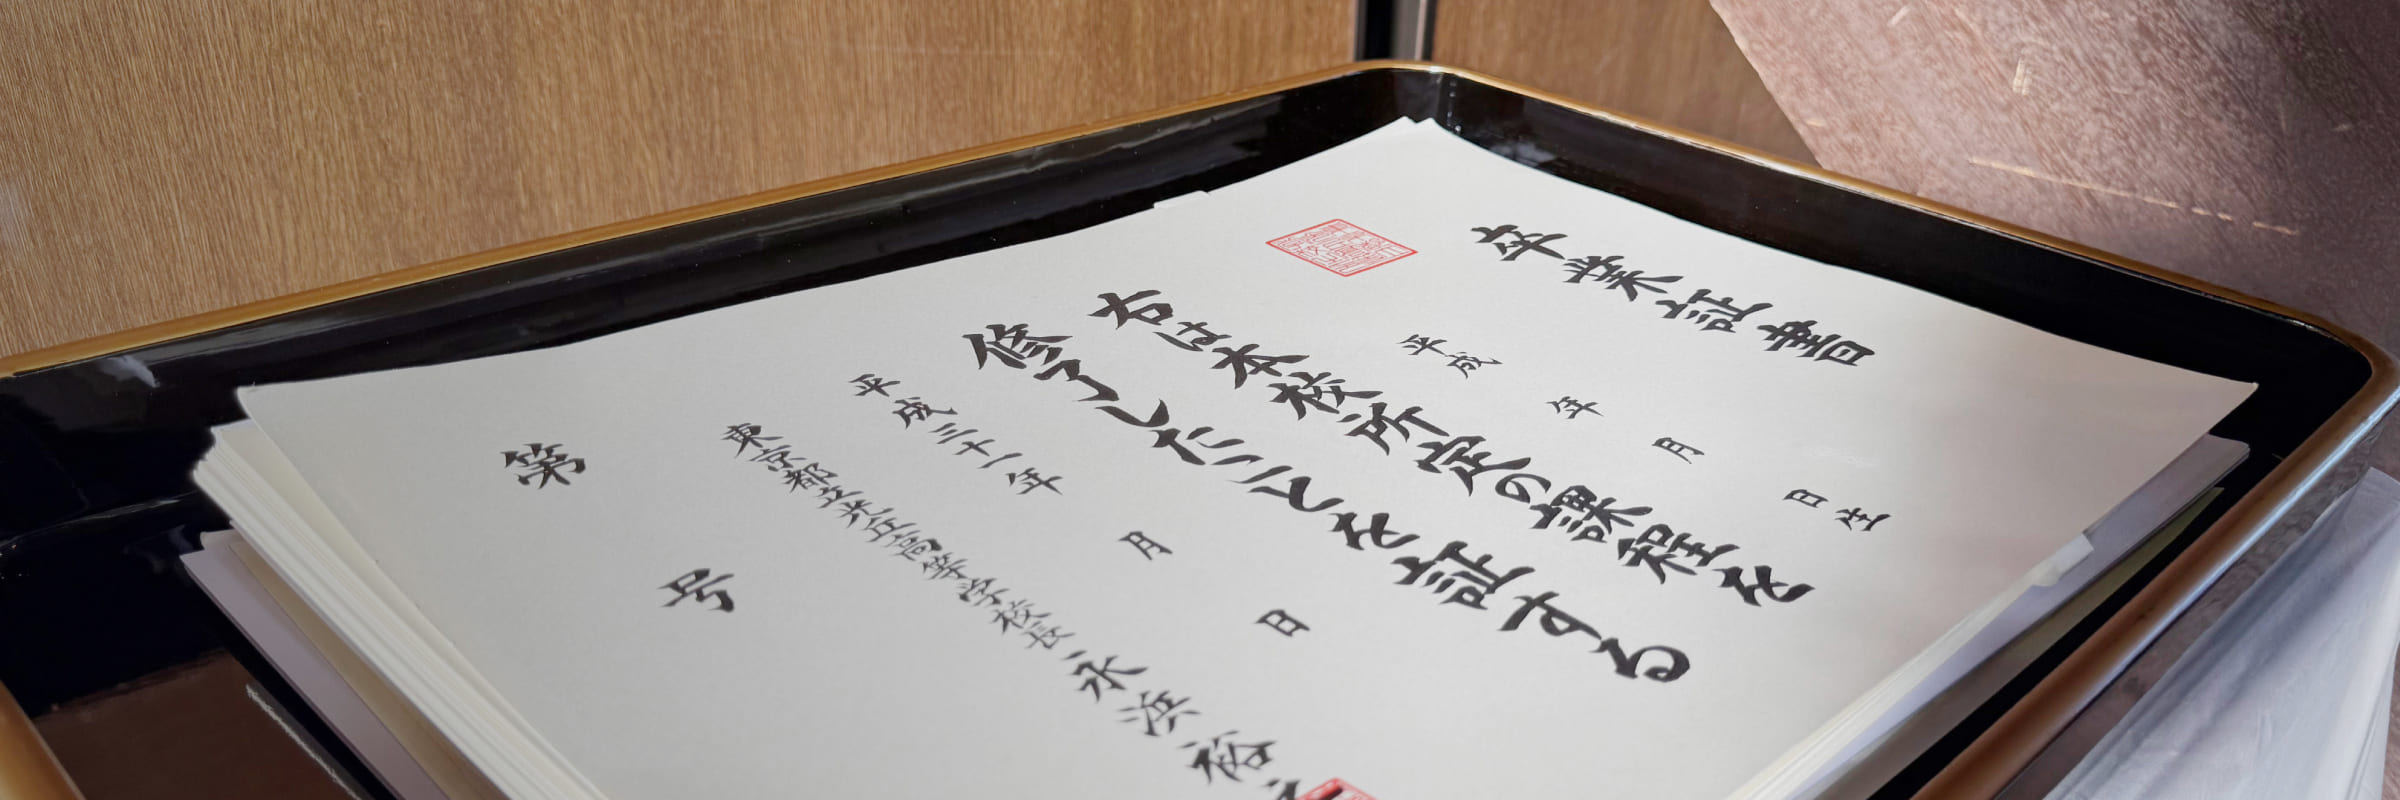 卒業証書
平成　年　月　日生
右は本校所定の課程を
修了したことを証する
平成三十一年　月　日
東京都立光丘高等学校長 永浜裕
第　号